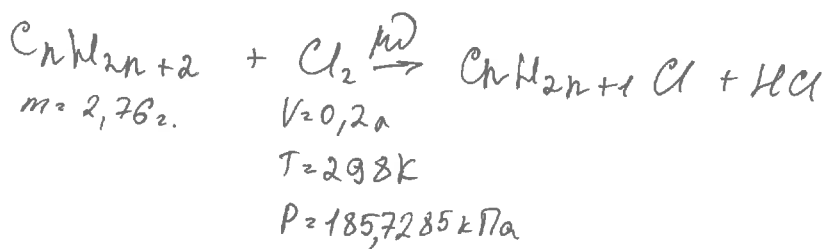 CnH2n+2 + Cl2 hν→ CnH2n+1 Cl + HCl
m = 2,76 г.
V = 0,2 л
T = 298 К
P = 185,7285 кПа